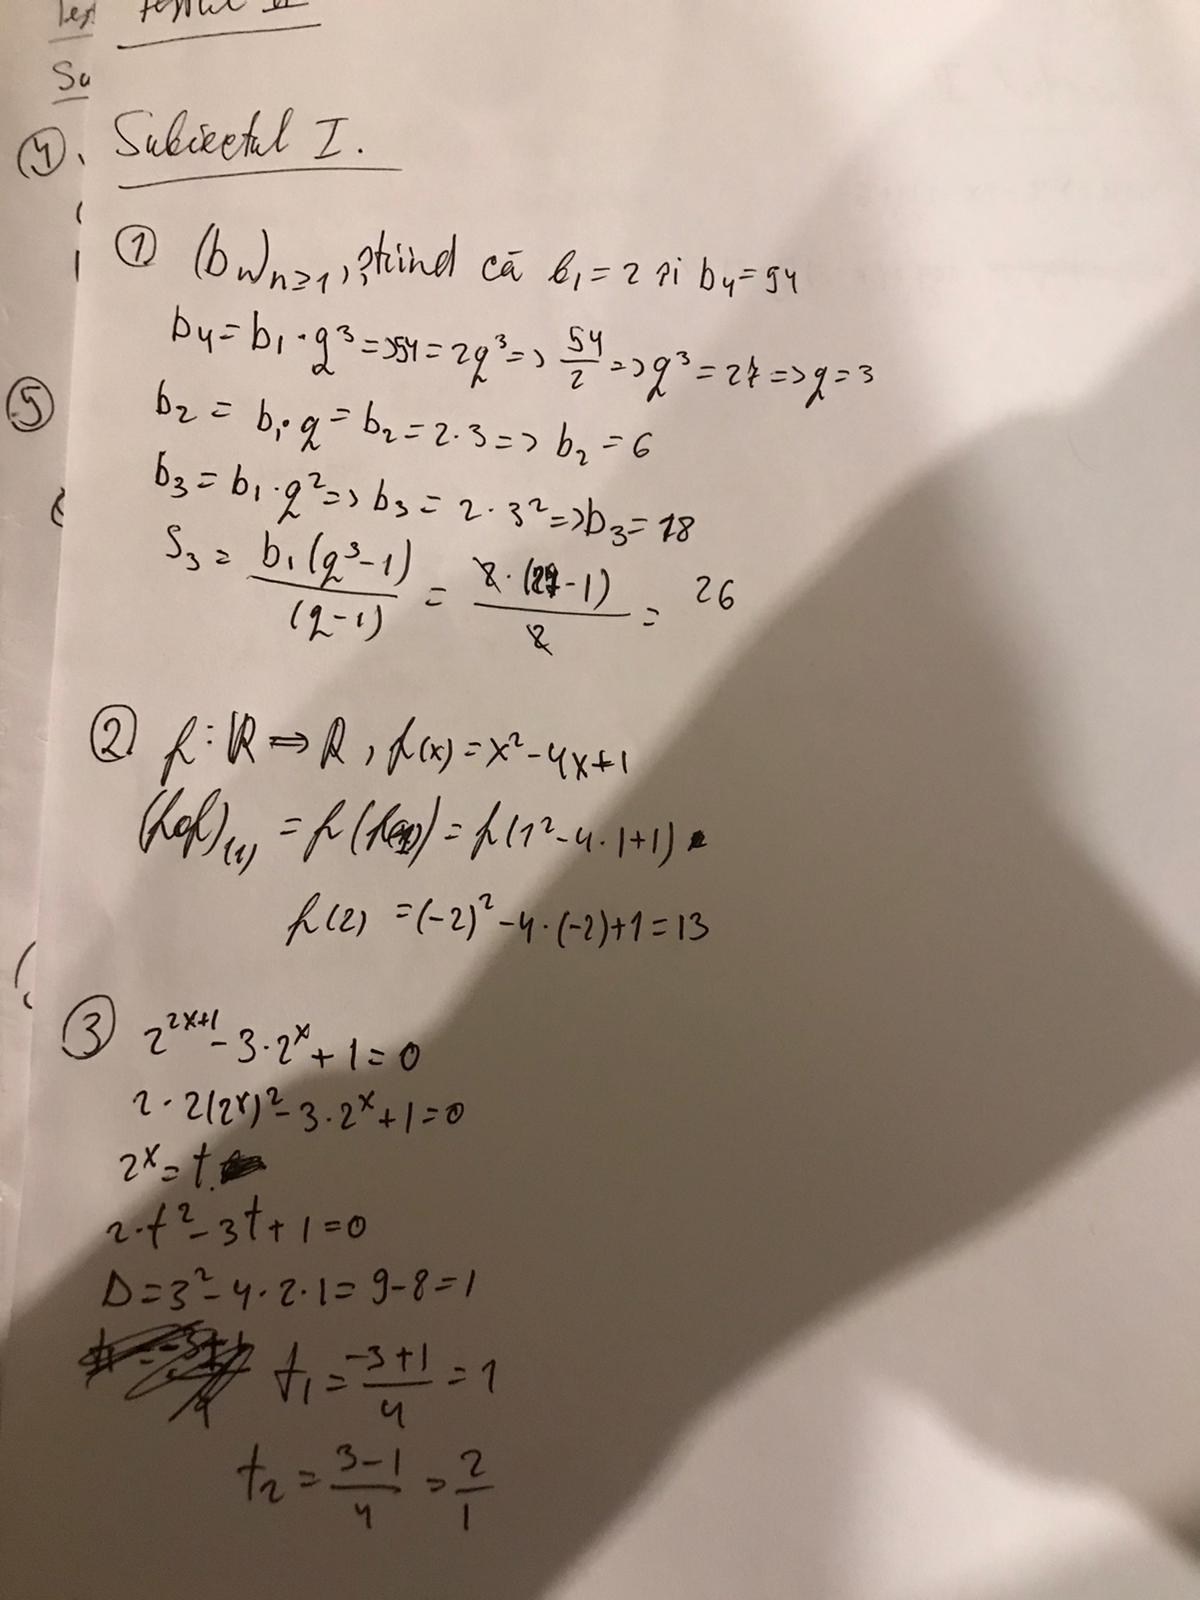 Subiectul I.
① (bn)n≥1, știind că b1 = 2 și b4 = 54
b4 = b1 · q³ => 54 = 2q³ => 54/2 => q³ = 27 => q = 3
b2 = b1 · q = b2 = 2 · 3 => b2 = 6
b3 = b1 · q² => b3 = 2 · 3² => b3 = 18
S3 = b1(q³-1)/(q-1) = 2 · (27-1)/2 = 26
② f : ℝ ⇒ ℝ, f(x) = x² - 4x + 1
(fof)(1) = f(f(1)) = f(1² - 4 · 1 + 1)
f(2) = (-2)² - 4 · (-2) + 1 = 13
③ 2^(2x+1) - 3 · 2^x + 1 = 0
2 · 2(2^x)² - 3 · 2^x + 1 = 0
2^x = t
2 · t² - 3t + 1 = 0
Δ = 3² - 4 · 2 · 1 = 9 - 8 = 1
t1 = -3+1/4 = 1
t2 = 3-1/4 = 2/1
④
Su
⑤